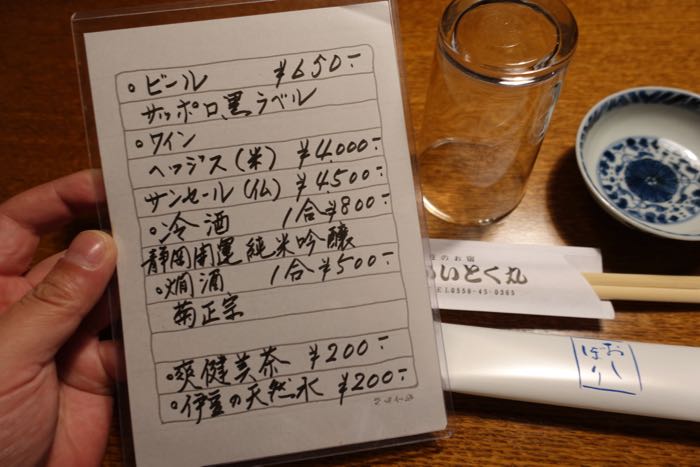 ○ビール ¥650-
サッポロ黒ラベル
○ワイン
ヘッジス(米) ¥4,000-
サンセール(仏) ¥4500-
○冷酒 1合¥800-
静岡開運 純米吟醸
○燗酒 1合¥500-
菊正宗
○爽健美茶 ¥200-
○伊豆の天然水 ¥200-
のお宿
いとく丸
TEL.0558-45-0365
おしぼり